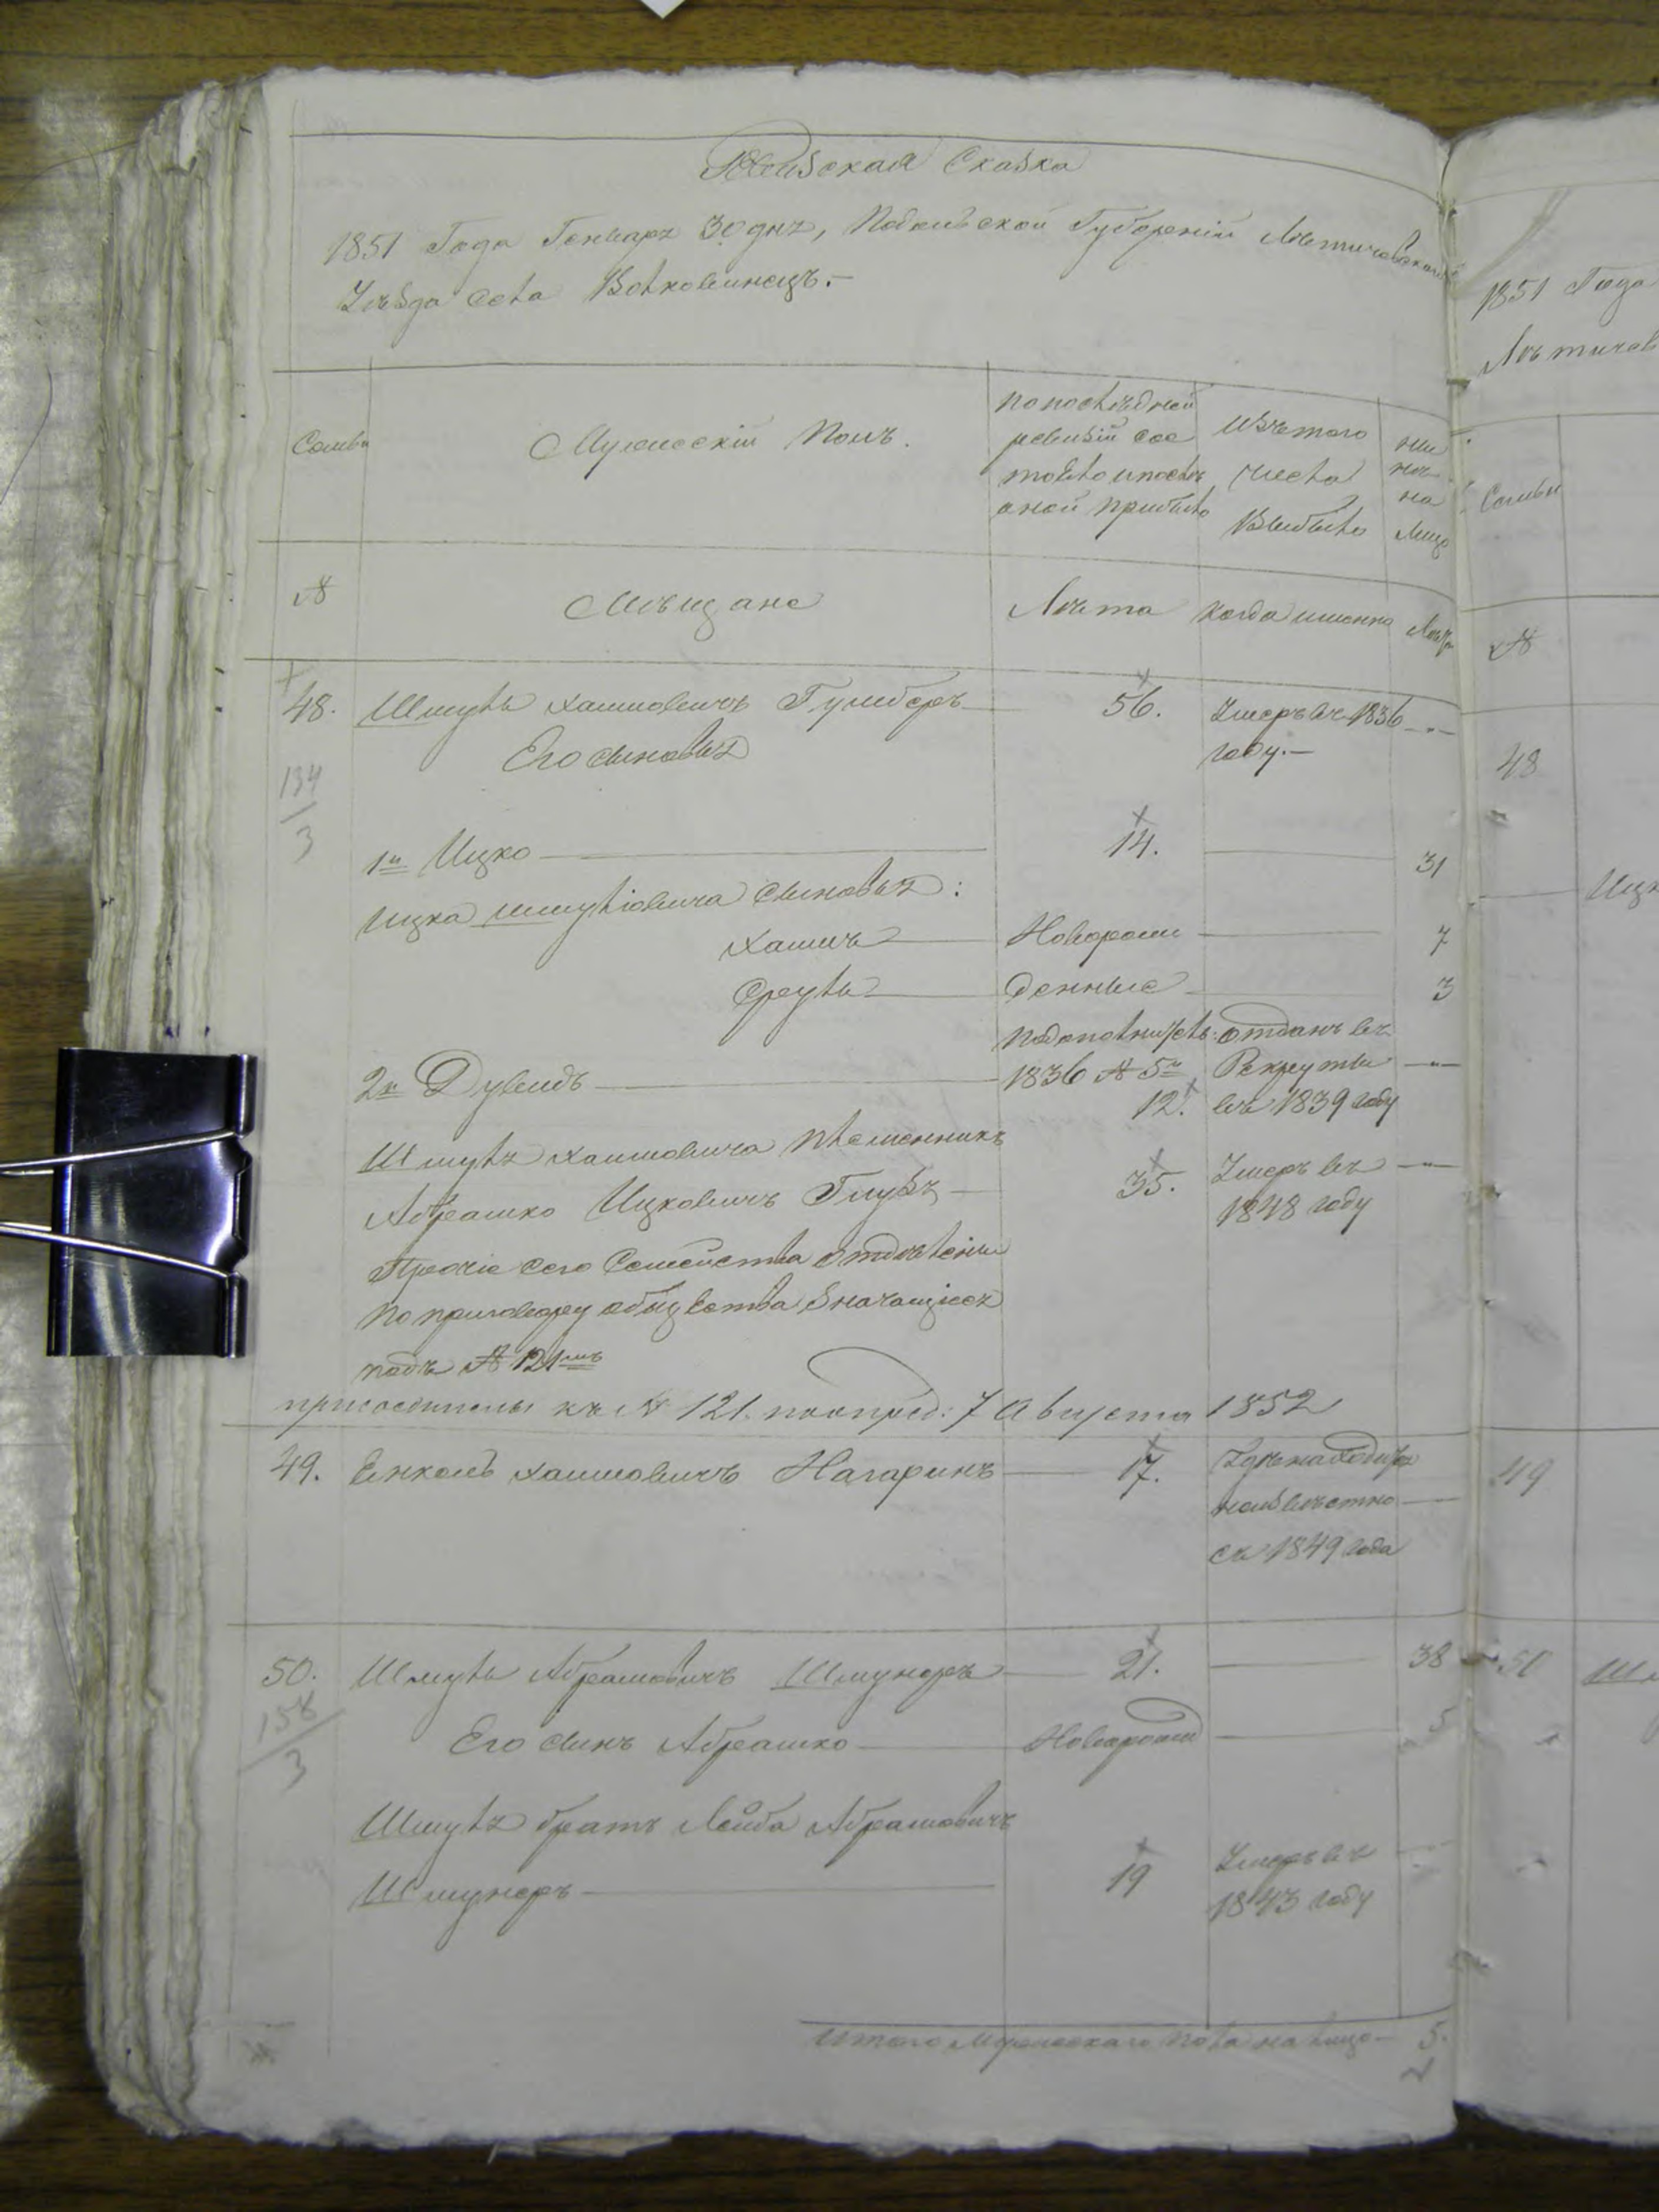 Ревизская Сказка
1851 Года Генваря 30 дня, Подольской Губерніи Летичовского
Уѣзда села Волковинецъ.—
Семьи
Мужескій Полъ.
по послѣдней
ревизіи сос
тояло и послѣ
оной прибыло
Изъ того
числа
Выбыло
ны
нѣ
на
Лицо
№
Мѣщане
Лѣта
Когда именно
Лѣта
48. Шмуль Хаимовичъ Гумберъ 56. Умеръ въ 1836
Его сыновья году.—
134/3
1й Ицко 14. 31
Ицка Шмулiовича сыновья:
Хаимъ Новорож 7
Сруль денные 3
отданъ въ
2й Дувидъ 1836 № 5й Рекруты
12. въ 1839 году
Шмуля Хаимовича племенникъ
Абрашко Ицковичъ 35. Умеръ въ
1848 году
Прочіе сего Семейства отдѣлены
по приговору общества значащіеся
подъ № 121мъ
присоединены къ № 121. по опред: 7 Августа 1852
49. Енкель Хаимовичъ Нагаринъ 17. Где находится
неизвѣстно
съ 1849 года
50. Шмуль Абрамовичъ Шмунеръ 21. 38
158/3
Его сынъ Абрашко Новорож 5
Шмуля братъ Лейба Абрамовичъ
Шмунеръ 19 Умеръ въ
1843 году
Итого Мужескаго пола на лицо— 5.
1851 Года
Летичов
Семьи
№
48
Ицк
49
50 Шм